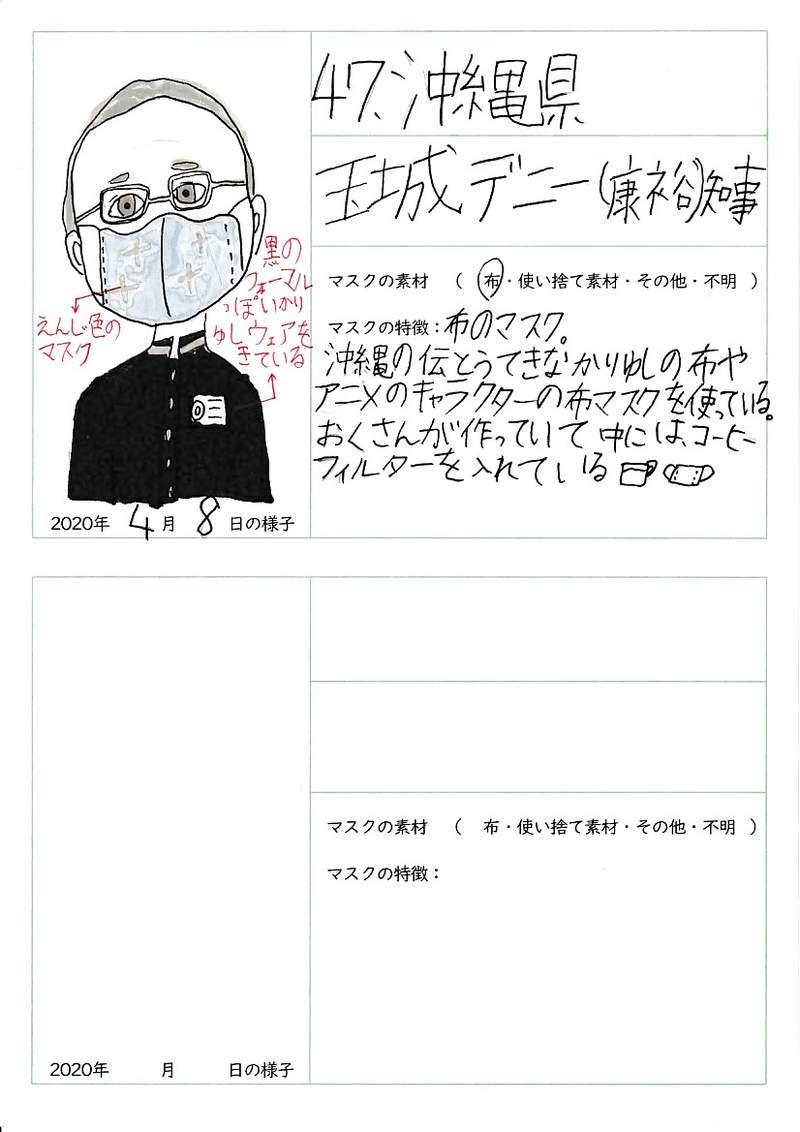 47、沖縄県
玉城デニー(康裕)知事
黒の
フォーマル
っぽいかり
ゆしウェアを
きている
えんじ色の
マスク
2020年 4月 8日の様子
マスクの素材 ( 布・使い捨て素材・その他・不明 )
マスクの特徴：布のマスク。
沖縄の伝とうてきなかりゆしの布や
アニメのキャラクターの布マスクを使っている。
おくさんが作っていて中にはコーヒー
フィルターを入れている
マスクの素材 ( 布・使い捨て素材・その他・不明 )
マスクの特徴：
2020年 月 日の様子